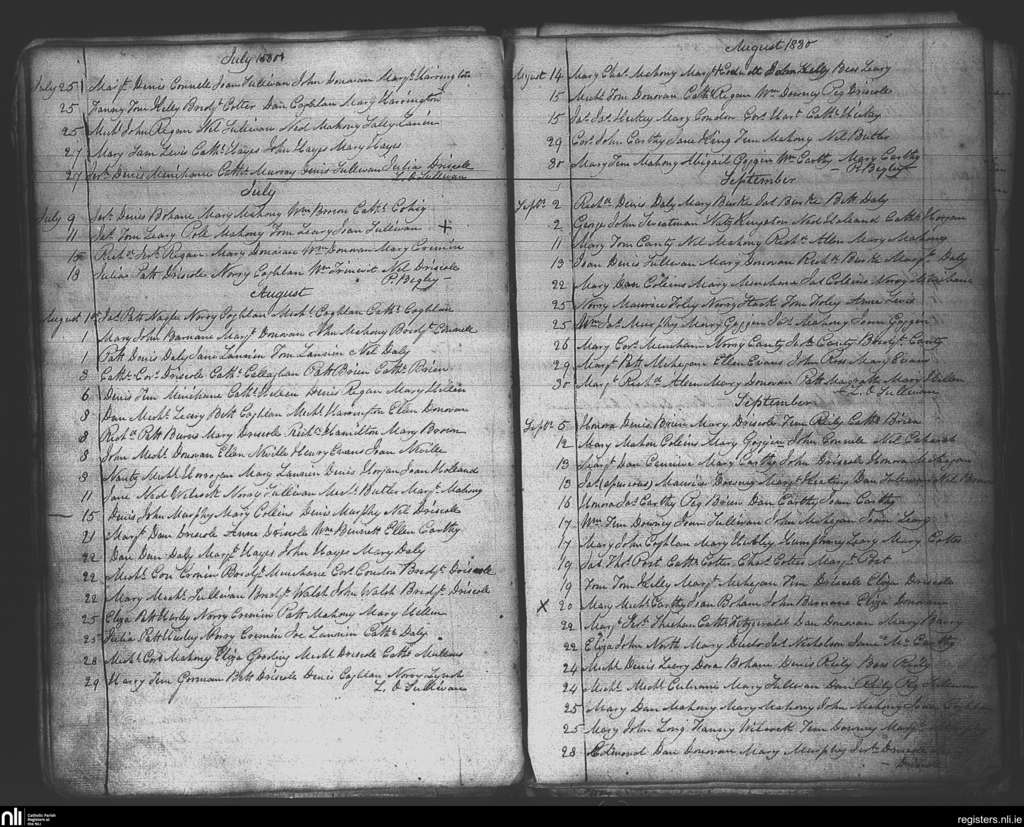 July 1830
July 25 Margt Denis Connell Joan Sullivan John Donovan Margt Harrington
25 Fanny Tim Kelly Bordgt Cotter Dan Coghlan Mary Harrington
25 Michl John Regan Nel Sullivan Ned Mahony
27 Mary Sam Lewis Cathe Hayes John Hayes Mary Hayes
27 Denis Minihane Cathe Murray Denis Sullivan Julia Driscole
L. O Sullivan
July
July 9 Denis Bohane Mary Mahony Wm Brown Cathe
11 Pat Tom Leary Mahony Tim Leary Joan Sullivan
Richd Regan Mary Donovan Wm Donovan Mary Cremin
18 Julia Patt Driscole Norry Coghlan Wm Nel Driscole
P. Begley
August
August 1st Norry Coghlan Michl Coghlan Cathe Coghlan
1 Mary John Barnane Margt Donovan John Mahony Bordgt
1 Patt Denis Daly Jane Lannin Tom Lannin Nel Daly
3 Cathe Cors Driscole Cathe Callaghan Patt Brien Cathe Brien
6 Denis Tim Minihane Cathe Denis Regan Mary
8 Dan Michl Leary Bett Coghlan Michl Harrington Ellen Donovan
8 Richd Patt Burns Mary Driscole Richd Hamilton Mary Brown
8 John Michl Donovan Ellen Neville Henry Evans Joan Neville
9 Michl Horrogan Mary Lannin Denis Horgan Joan Holland
11 Jane Ned Norry Sullivan Michl Butler Margt Mahony
15 Denis John Murphy Mary Collins Denis Murphy Nel Driscole
21 Margt Dan Driscole Anne Driscole Wm Ellen Carthy
22 Dan Dan Daly Margt Hayes John Hayes Mary Daly
22 Michl Con Cremin Bordgt Minihane Cors Condon Bridgt Driscole
22 Mary Michl Sullivan Bridgt Walsh John Walsh Bridgt Driscole
25 Eliza Patt Hurley Norry Cremin Patt Mahony Mary
25 Julia Patt Hurley Norry Cremin Joe Lannin Cathe Daly
28 Michl Cors Mahony Eliza Gosling Michl Driscole Cathe Mullane
29 Harry Tim Gorman Bett Driscole Denis Coghlan Norry Lynch
L. O Sullivan
August 1830
August 14 Mary Chas Mahony Margt John Kelly Bess Leary
15 Michl Tom Donovan Cathe Regan Wm Downy Peg Driscole
15 Jas Jas Hickey Mary Condon Cors Hart Cathe Hickey
29 Cors John Carthy Jane King Tim Mahony Nel Butler
30 Mary Tim Mahony Abigail Goggin Wm Carthy Mary Carthy
P. Begley
September
Septr 2 Richd Denis Daly Mary Burke Jas Burke Bett Daly
2 George John Sweetman Kate Kingston Ned Holland Cathe Horgan
11 Mary Tom Canty Nel Mahony Richd Allen Mary Mahony
13 Joan Denis Sullivan Mary Donovan Richd Burke Margt Daly
22 Mary Dan Collins Mary Minihane Jas Collins Norry
25 Norry Maurice Foley Norry Hart Tim Foley Anne Lewis
25 Wm Jas Murphy Mary Goggin Jas Mahony Joan Goggin
26 Mary Cors Minihane Norry Canty Canty Bridgt Canty
29 Margt Patt Mehegan Ellen Evans John Ross Mary Evans
30 Margt Richd Allen Mary Donovan Patt Mary
L. O Sullivan
September
Septr 5 Honora Denis Brien Mary Driscole Tim Reily Cathe Brien
12 Mary Mahon Collins Mary Goggin John Connile Nel
13 Margt Dan Mary Carthy John Driscole Honora Mehegan
13 Jas (spurious) Maurice Downy Margt Keating Dan Sullivan Nel
16 Honora Jas Carthy Peg Brien Dan Carthy Joan Carthy
17 Wm Tim Downy Joan Sullivan John Mehegan Joan Leary
17 Mary John Coghlan Mary Humphrey Leary Mary Cotter
19 Jas Thos Post Cathe Cotter Chas Cotter Margt Post
19 Tom Tom Kelly Margt Mehegan Tim Driscole Eliza Driscole
20 Mary Michl Carthy Joan Bohane John Barnane Eliza Donovan
22 Margt Cathe Fitzgerald Dan Donovan Mary Barry
22 Eliza John North Mary Jas Nicholson Jane Mc Carthy
24 Michl Denis Leary Dora Bohane Denis Reily Bess Reily
24 Michl Michl Mary Sullivan Dan Reily Peg
25 Mary Dan Mahony Mary Mahony John Mahony
25 Mary John Long Fanny Tim Downy Mary
28 Edmond Dan Donovan Mary Murphy
nli Catholic Parish Registers at the NLI
registers.nli.ie